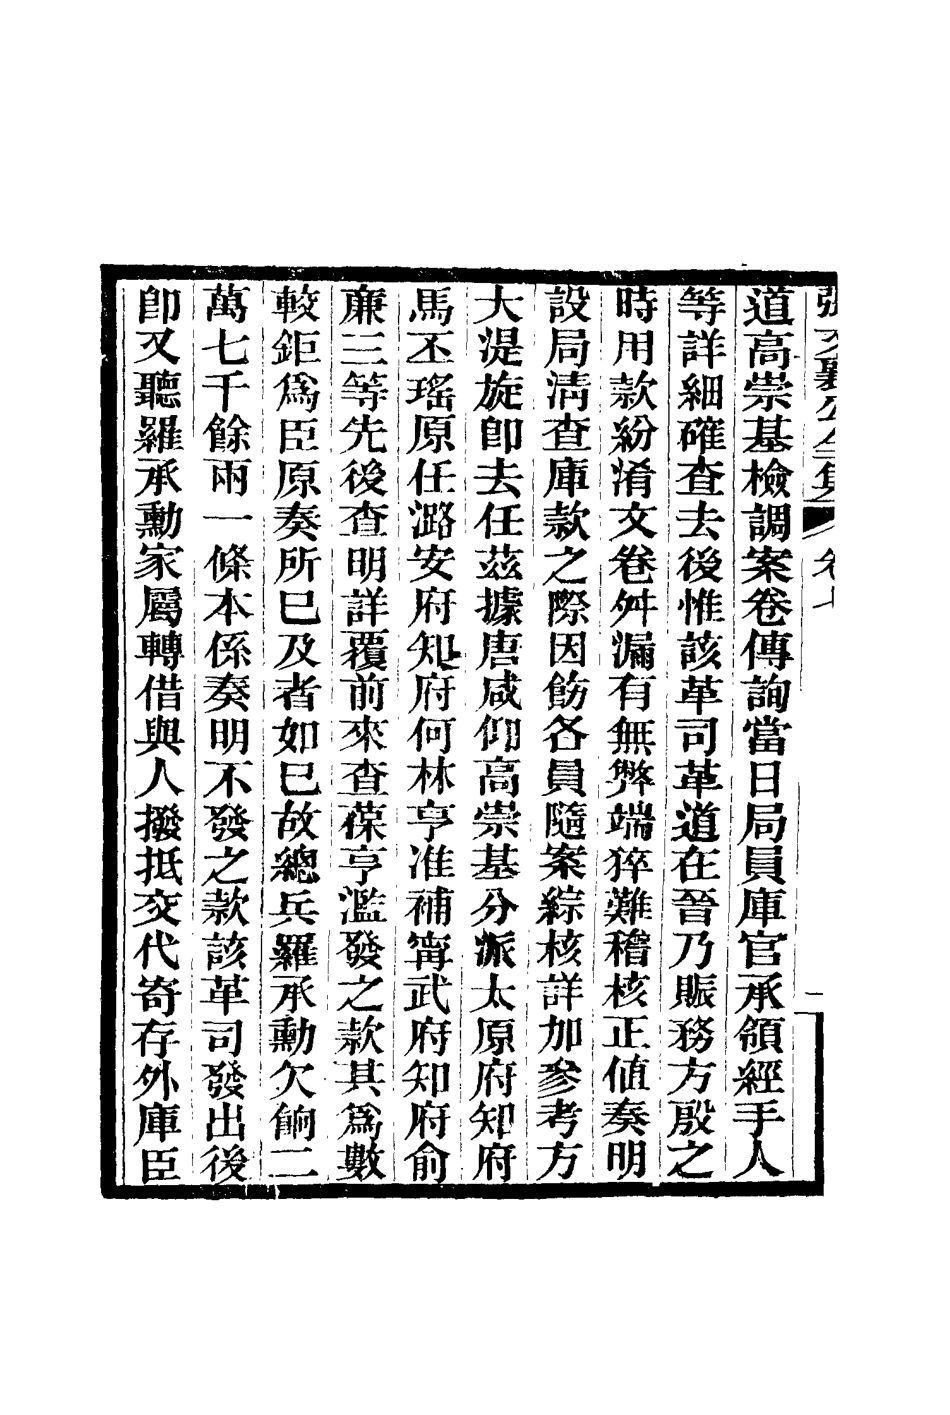 張文襄公全集 卷七
道高崇基檢調案卷傳詢當日局員庫官承領經手人
等詳細確查去後惟該革司革道在晉乃賑務方殷之
時用款紛淆文卷舛漏有無弊端猝難稽核正值奏明
設局清查庫款之際因飭各員隨案綜核詳加參考方
大湜旋卽去任茲據唐咸仰高崇基分派太原府知府
馬丕瑤原任潞安府知府何林亨准補甯武府知府俞
廉三等先後查明詳覆前來查葆亨濫發之款其爲數
較鉅爲臣原奏所已及者如已故總兵羅承勳欠餉二
萬七千餘兩一條本係奏明不發之款該革司發出後
卽又聽羅承勳家屬轉借與人撥抵交代寄存外庫臣